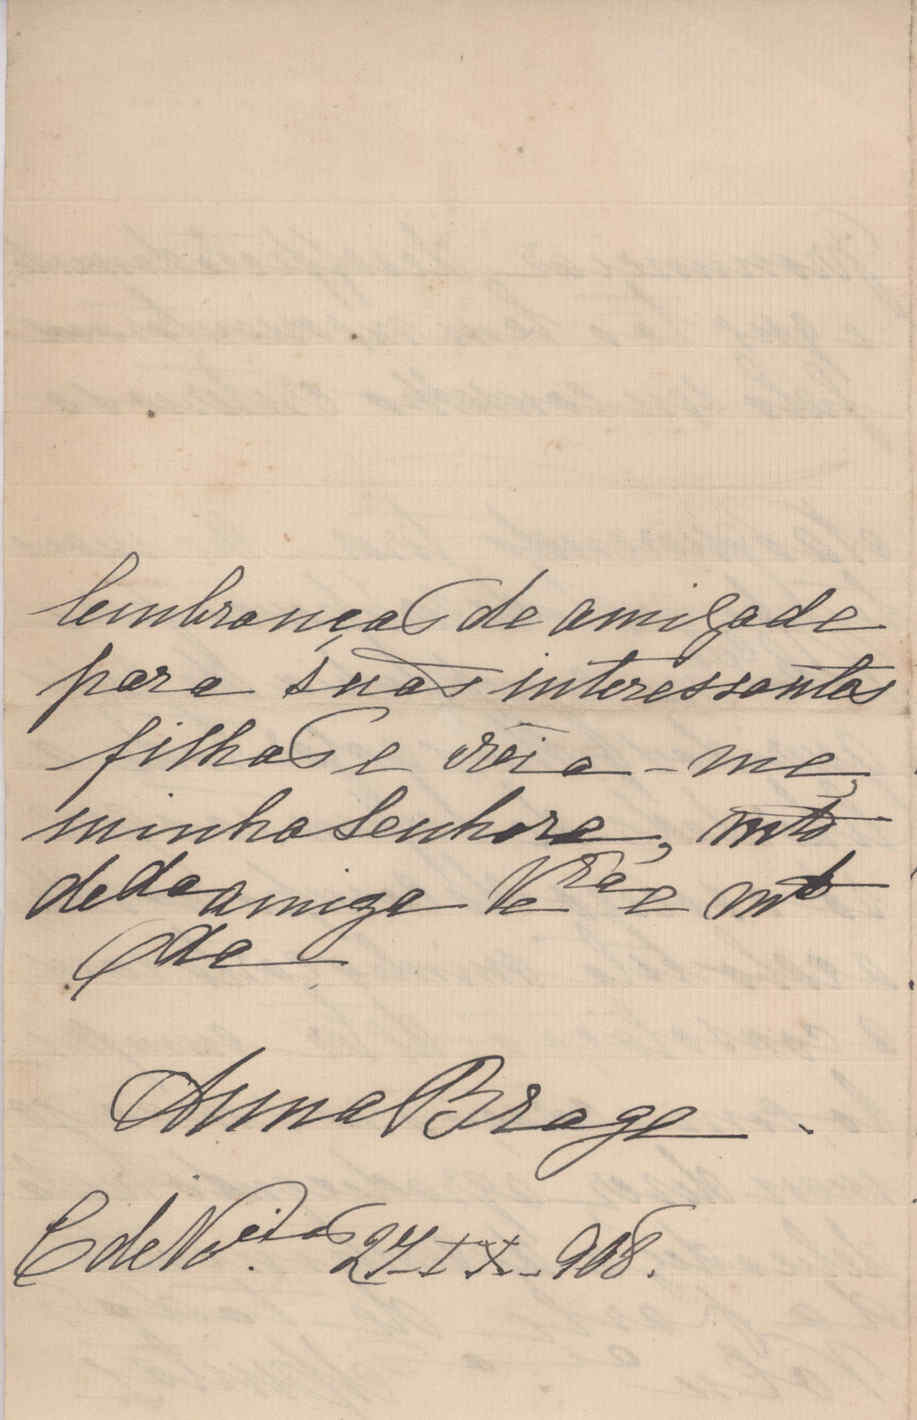 lembranças de amizade
para suas interessantes
filhas e creia-me,
minha Senhora, mto
dedda amiga Vera e mto
Anna Braga.
C de 27-IX-908.